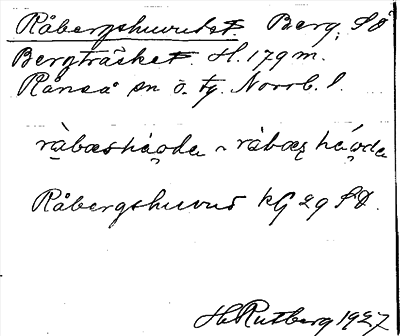 Råbergshuvudet. Berg. SÖ
Bergträsket. H. 179 m.
Råneå sn ö. tg. Norrb. l.
ràbæshá̱o̥da ~ ràbæʂ há̱o̥da
Råbergshuvud kG 29 SÖ.
H. Rutberg 1927